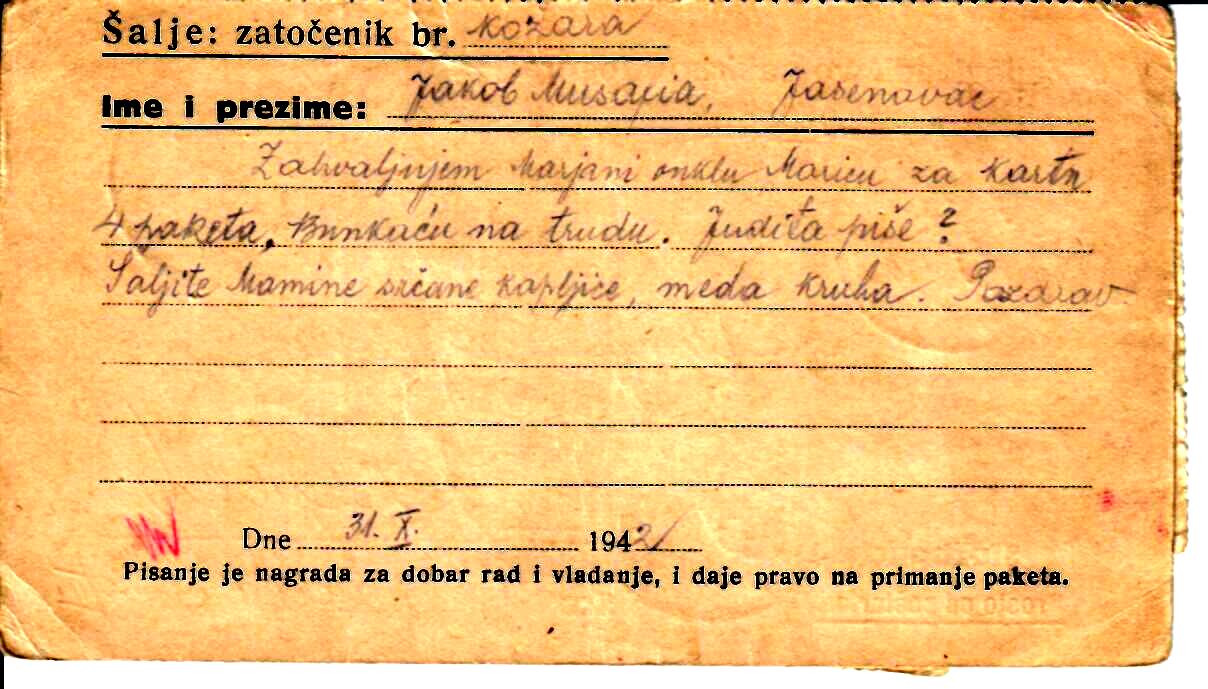 Šalje: zatočenik br. Kozara
Ime i prezime: Jakob Musafia, Jasenovac
Zahvaljujem Marjani onklu Maricu za kartu
4 paketa, Bunkaću na trudu. Judita piše?
Šaljite Mamine srčane kapljice, meda kruha. Pozdrav
Dne 31. X. 1942
Pisanje je nagrada za dobar rad i vladanje, i daje pravo na primanje paketa.